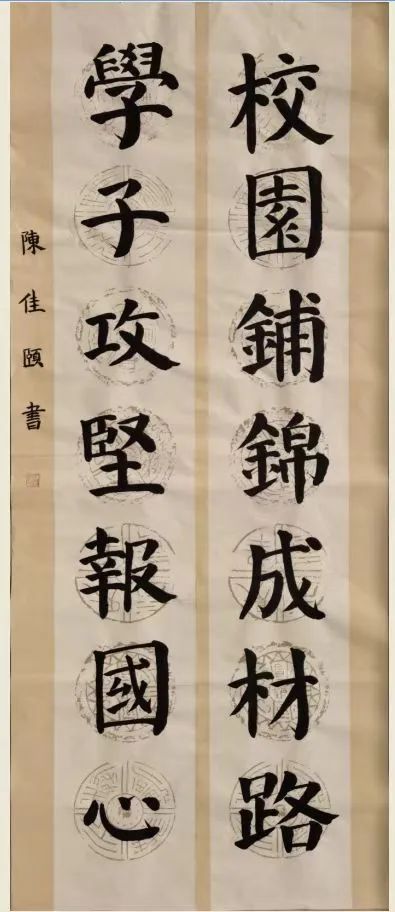 校園鋪錦成材路
學子攻堅報國心
陳佳頤書